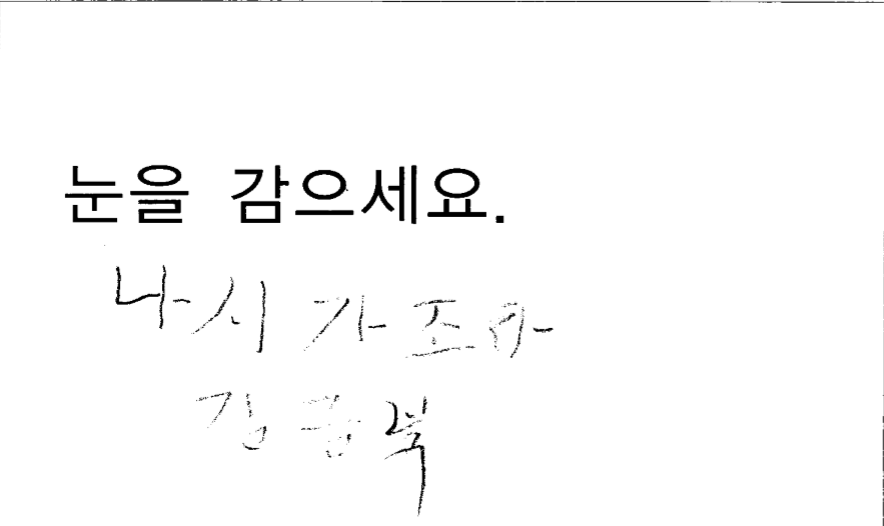 눈을 감으세요.
나시 가 조아
김